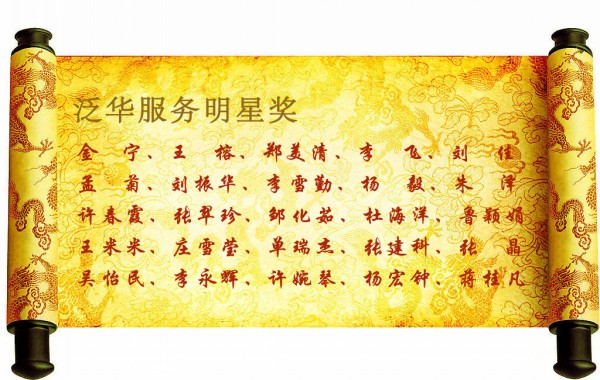 泛华服务明星奖
金　宁、王　榕、郑美清、李　飞、刘　佳
孟　菊、刘振华、李雪勤、杨　毅、朱　泽
许春霞、张翠珍、邹化茹、杜海洋、鲁颖娟
王米米、庄雪莹、单瑞杰、张建科、张　晶
吴怡民、李永辉、许婉琴、杨宏钟、蒋桂凡